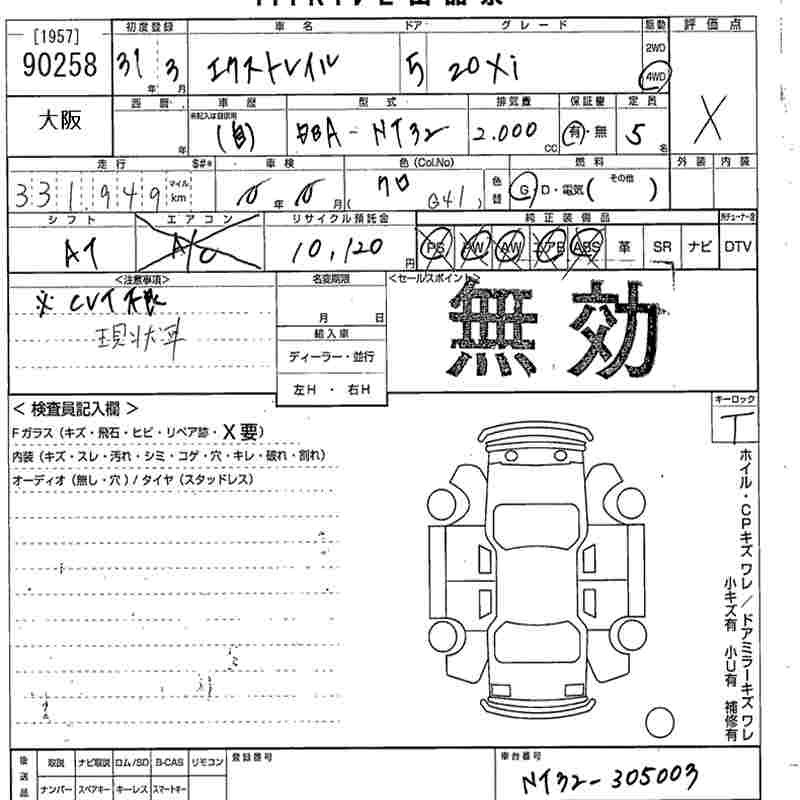 [1957]
90258
初度登録 車名 ドア グレード 駆動 評価点
31年 3月 エクストレイル 5 20Xi 2WD 4WD X
大阪
西暦 年 車歴 型式 排気量 保証書 定員
未記入は自家用 (自) DBA-NT32 2.000cc 有・無 5名
走行 S#* 車検 色(Col.No) 燃料 外装 内装
331,949 マイル km 年 月 クロ (G41) 色替 G D・電気( その他 )
シフト エアコン リサイクル預託金 純正装備品
AT A/C 10,120円 PS PW AW エアB ABS 革 SR ナビ DTV
<注意事項> 名変期限 <セールスポイント>
※ CVT不良
現状車
月 日
輸入車
ディーラー・並行
左H ・ 右H
無効
< 検査員記入欄 > キーロック
Fガラス (キズ・飛石・ヒビ・リペア跡・X要) T
内装 (キズ・スレ・汚れ・シミ・コゲ・穴・キレ・破れ・割れ)
オーディオ (無し・穴) / タイヤ (スタッドレス)
ホイル・CPキズ ワレ / ドアミラーキズ ワレ
小キズ有 小U有 補修有
後送品 取説 ナビ取説 ロム/SD B-CAS リモコン 登録番号 車台番号
ナンバー スペアキー キーレス スマートキー NT32-305003